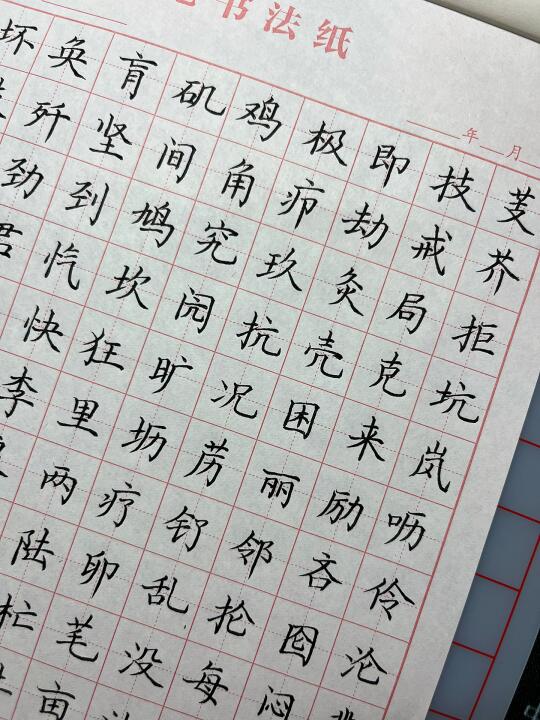 书法纸
年 月
坏奂肓矶鸡极即技芰
歼坚间角疖劫戒芥
劲刭鸠究玖灸局拒
君忾坎闶抗壳克坑
快狂旷况困来岚
李里坜苈丽励呖
两疗钌邻吝伶
陆卵乱抡囵沦
杧芼没每闷
亩